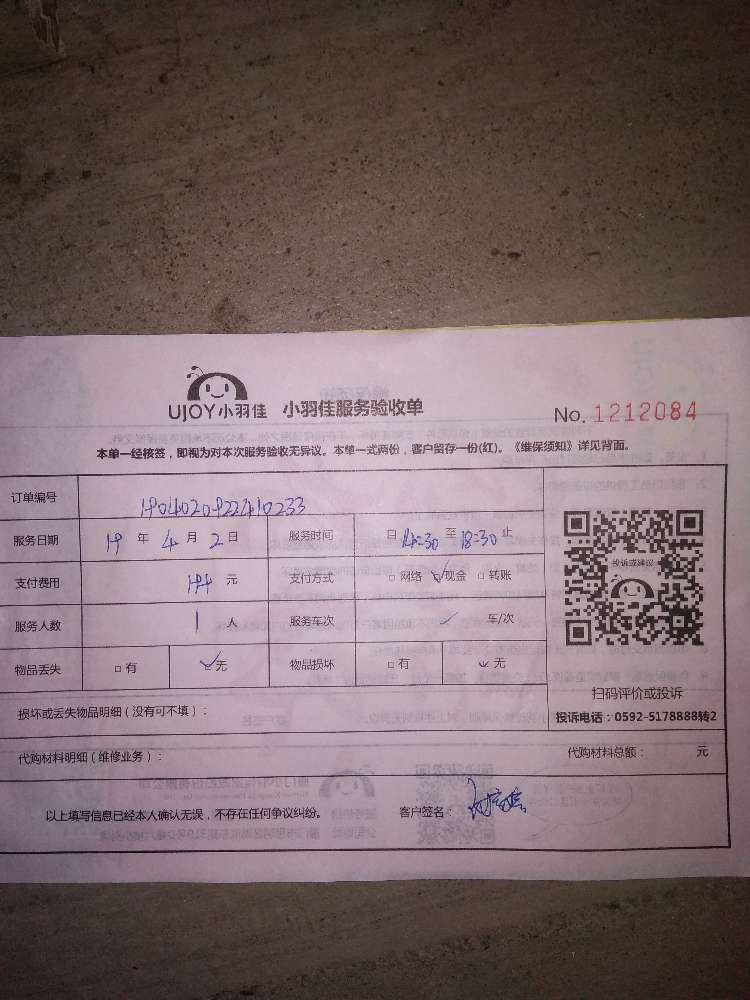 UJOY小羽佳 小羽佳服务验收单
No. 1212084
本单一经核签，即视为对本次服务验收无异议。本单一式两份，客户留存一份(红)。《维保须知》详见背面。
订单编号
服务日期 19 年 4 月 2 日 服务时间 自 14:30 至 18:30 止
支付费用 元 支付方式 □ 网络 ✓现金 □ 转账
服务人数 1 人 服务车次 ✓ 车/次
物品丢失 □ 有 ✓无 物品损坏 □ 有 ✓ 无
投诉或建议
扫码评价或投诉
投诉电话：0592-5178888转2
损坏或丢失物品明细（没有可不填）：
代购材料明细（维修业务）： 代购材料总额： 元
以上填写信息已经本人确认无误，不存在任何争议纠纷。 客户签名：